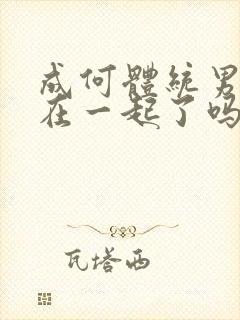 成何體統男
在一起了吗
瓦塔西